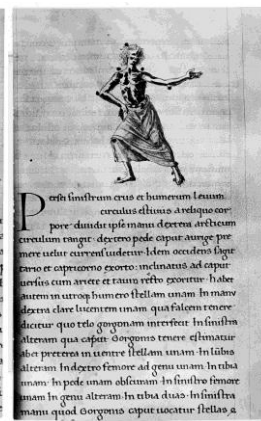 Persei sinistrum crus et humerum leuum
circulus estiuus a reliquo cor
pore diuidit ipse manu dextera arcticum
circulum tangit dextero pede caput aurige pre
mere uelut currens uidetur Idem occidens sagit
tario et capricorno exorto inclinatus ad caput
uersus cum ariete et tauro restro exoritur habet
autem in utroque humero stellam unam In manu
dextra clare lucentem unam qua falcem tenere
dicitur quo telo gorgonam interfecit In sinistra
alteram qua caput Gorgonis tenere estimatur
abet preterea in uentre stellam unam In lubis
alteram In dextro femore ad genu unam In tibia
unam In pede unam obscuram In sinistro femore
unam In genu alteram In tibia duas In sinistra
manu quod Gorgonis caput uocatur stellas